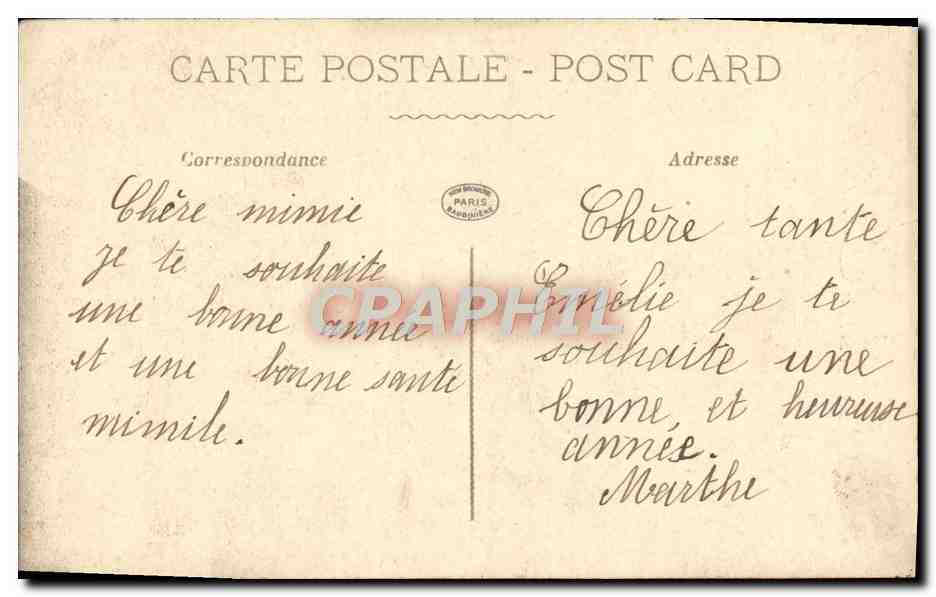 CARTE POSTALE - POST CARD
Correspondance
Chère mimie
je te souhaite
une bonne année
et une bonne santé
mimile.
PARIS
Adresse
Chère tante
Emélie je te
souhaite une
bonne, et heureuse
année.
Marthe
CPAPHIL